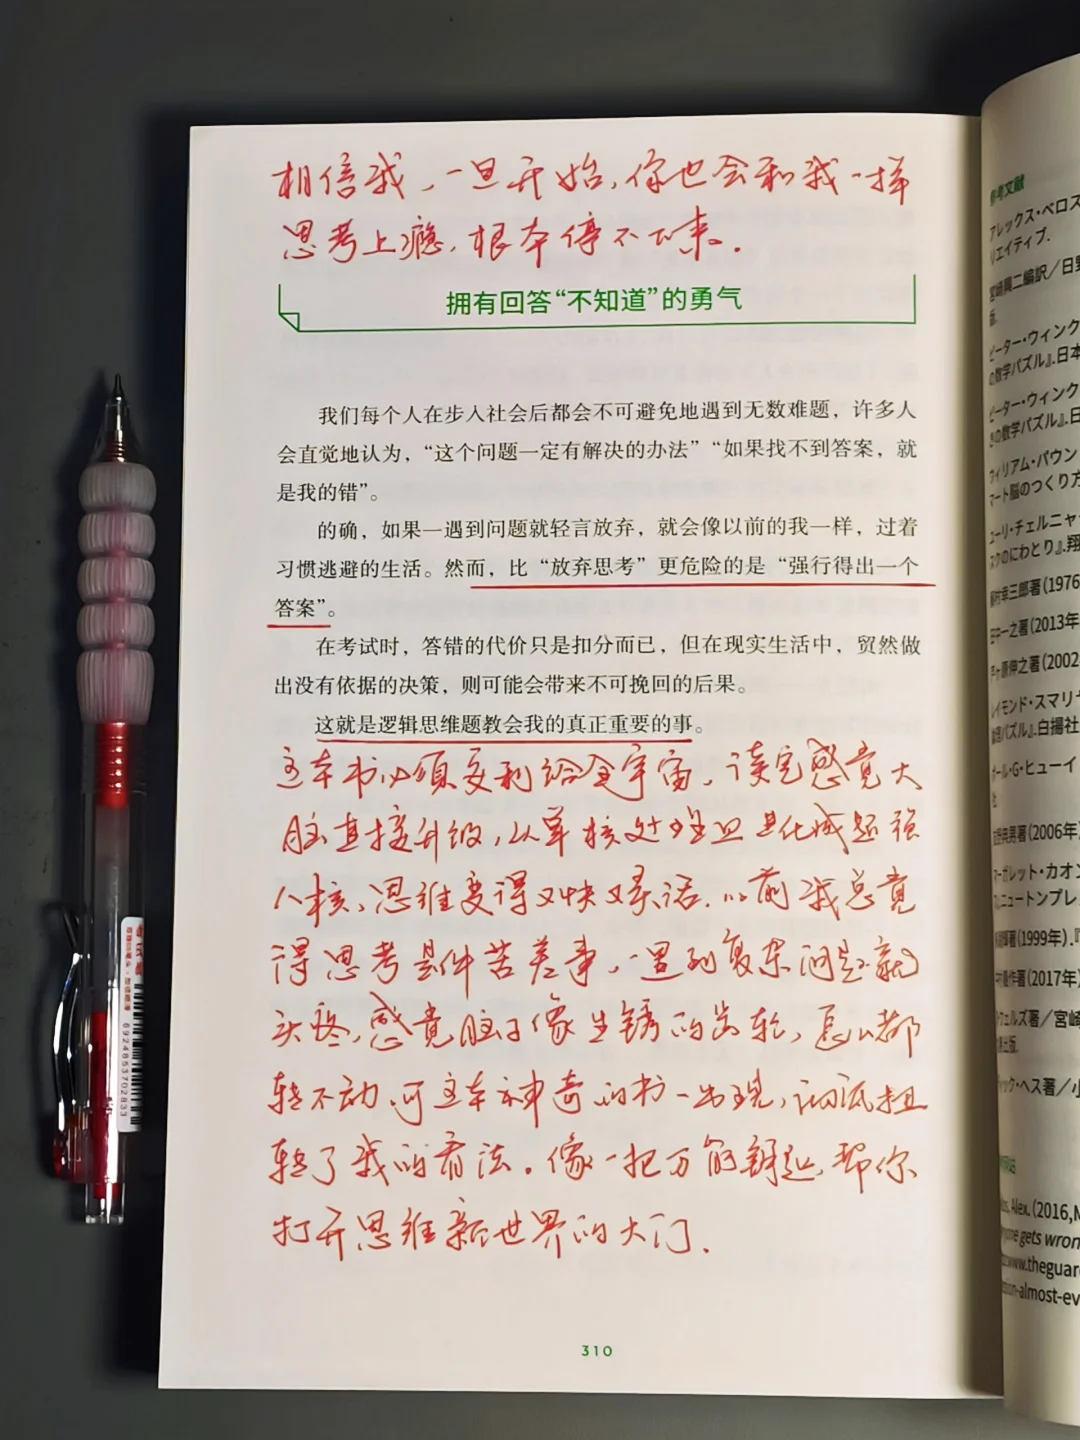 相信我，一旦开始，你也会和我一样
思考上瘾，根本停不下来。
拥有回答“不知道”的勇气
我们每个人在步入社会后都会不可避免地遇到无数难题，许多人
会直觉地认为，“这个问题一定有解决的办法”“如果找不到答案，就
是我的错”。
的确，如果一遇到问题就轻言放弃，就会像以前的我一样，过着
习惯逃避的生活。然而，比“放弃思考”更危险的是“强行得出一个
答案”。
在考试时，答错的代价只是扣分而已，但在现实生活中，贸然做
出没有依据的决策，则可能会带来不可挽回的后果。
这就是逻辑思维题教会我的真正重要的事。
这本书必须安利给全宇宙，读完感觉大
脑直接升级，从单核处理器进化成超强
八核，思维变得又快又灵活。以前我总觉
得思考是件苦差事，一遇到复杂问题就
头疼，感觉脑子像生锈的齿轮，怎么都
转不动。可这本神奇的书一出现，彻底扭
转了我的看法。像一把万能钥匙，帮你
打开思维新世界的大门。
310
参考文献
アレックス・ベロス
リエイティブ.
宮崎興二編訳／日野
版.
ピーター・ウィンク
の数学パズル』.日本
ピーター・ウィンク
きの数学パズル』.日
ウィリアム・パウン
マート脳のつくり方
ユーリ・チェルニャ
スクのにわとり』.翔
田中一之著（2013年
芦ヶ原伸之著（2002
レイモンド・スマリヤ
論理パズル』.白揚社
ポール・G・ヒューイ
社
友野典男著（2006年）
マーガレット・カオン
ズ』.ニュートンプレ
著（1999年）.『
中村義作著（2017年）
ウェルズ著／宮崎
出版.
ディック・ヘス著／小
Alex. (2016,M
gets wron
www.theguar
on-almost-ev
6924853702833